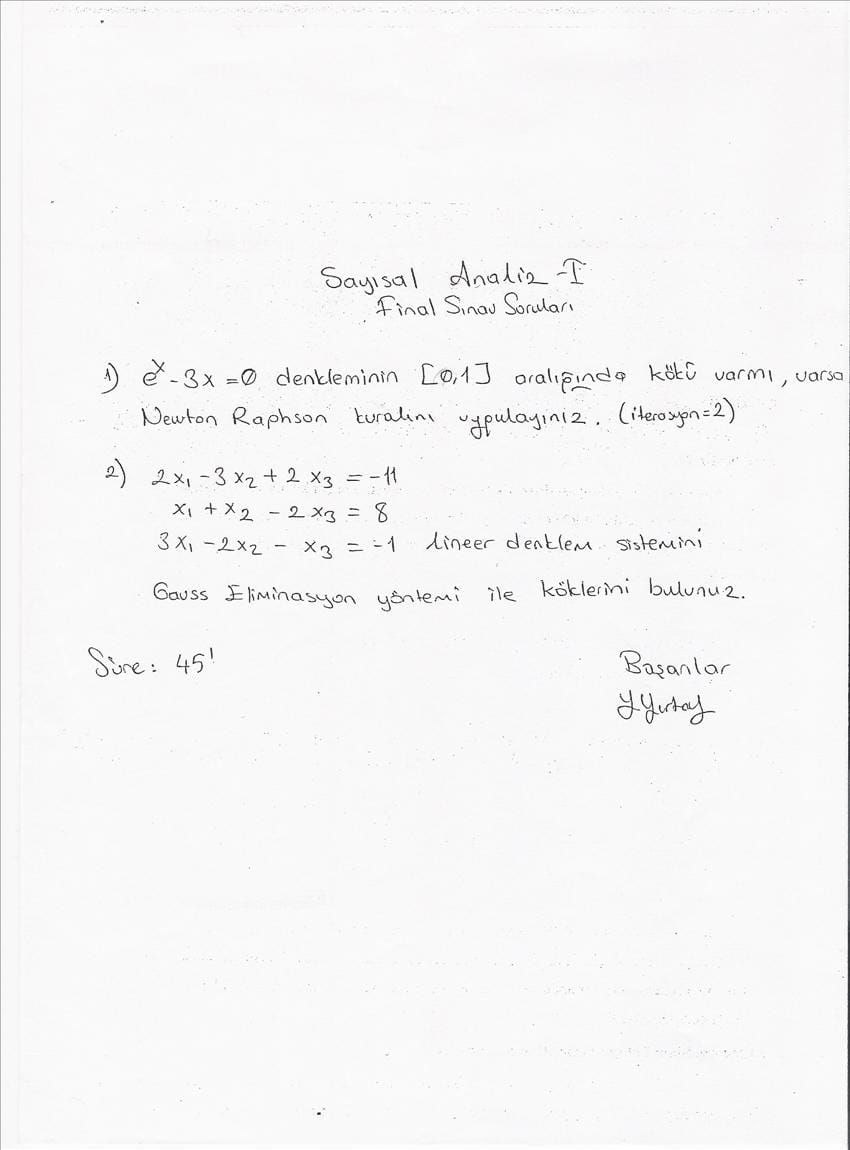 Sayısal Analiz -I
Final Sınav Soruları
1) e^x - 3x = 0 denkleminin [0,1] aralığında kökü varmı, varsa
Newton Raphson kuralını uygulayınız. (iterasyon=2)
2) 2x₁ - 3x₂ + 2x₃ = -11
x₁ + x₂ - 2x₃ = 8
3x₁ - 2x₂ - x₃ = -1 lineer denklem sistemini
Gauss Eliminasyon yöntemi ile köklerini bulunuz.
Süre: 45'
Başarılar
Y.Yurtay